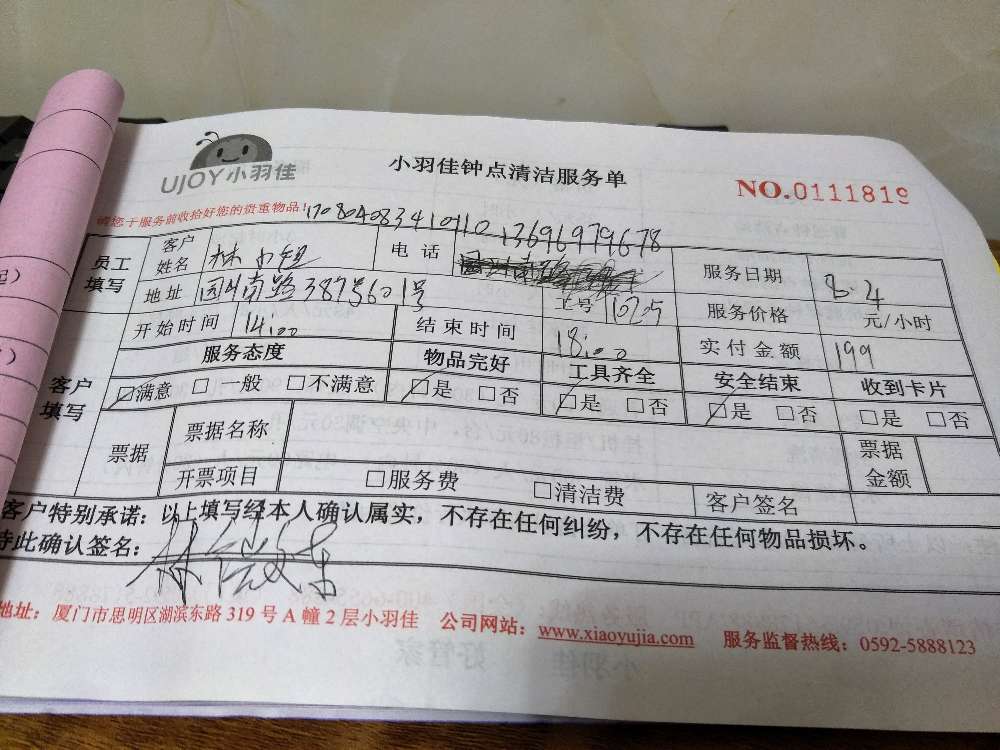 UJOY小羽佳
小羽佳钟点清洁服务单
NO.0111819
请您于服务前收拾好您的贵重物品!
13696979678
员工填写 客户姓名 林小姐 电话 服务日期 8.4
地址 路387号601号 工号 服务价格 元/小时
开始时间 14:00 结束时间 18:00 实付金额 199
客户填写 服务态度 物品完好 工具齐全 安全结束 收到卡片
☑满意 □一般 □不满意 ☑是 □否 ☑是 □否 ☑是 □否 □是 □否
票据 票据名称 票据金额
开票项目 □服务费 □清洁费 客户签名
客户特别承诺:以上填写经本人确认属实,不存在任何纠纷,不存在任何物品损坏。
特此确认签名:
地址:厦门市思明区湖滨东路 319 号 A 幢 2 层小羽佳 公司网站:www.xiaoyujia.com 服务监督热线:0592-5888123